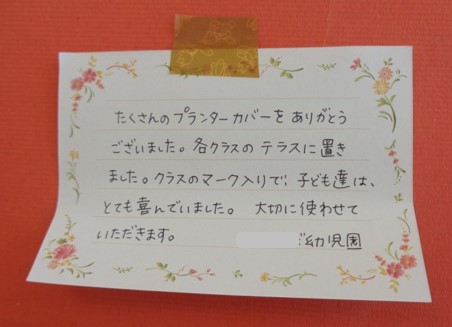 たくさんのプランターカバーをありがとう
ございました。各クラスのテラスに置き
ました。クラスのマーク入りで、子ども達は、
とても喜んでいました。大切に使わせて
いただきます。
幼児園